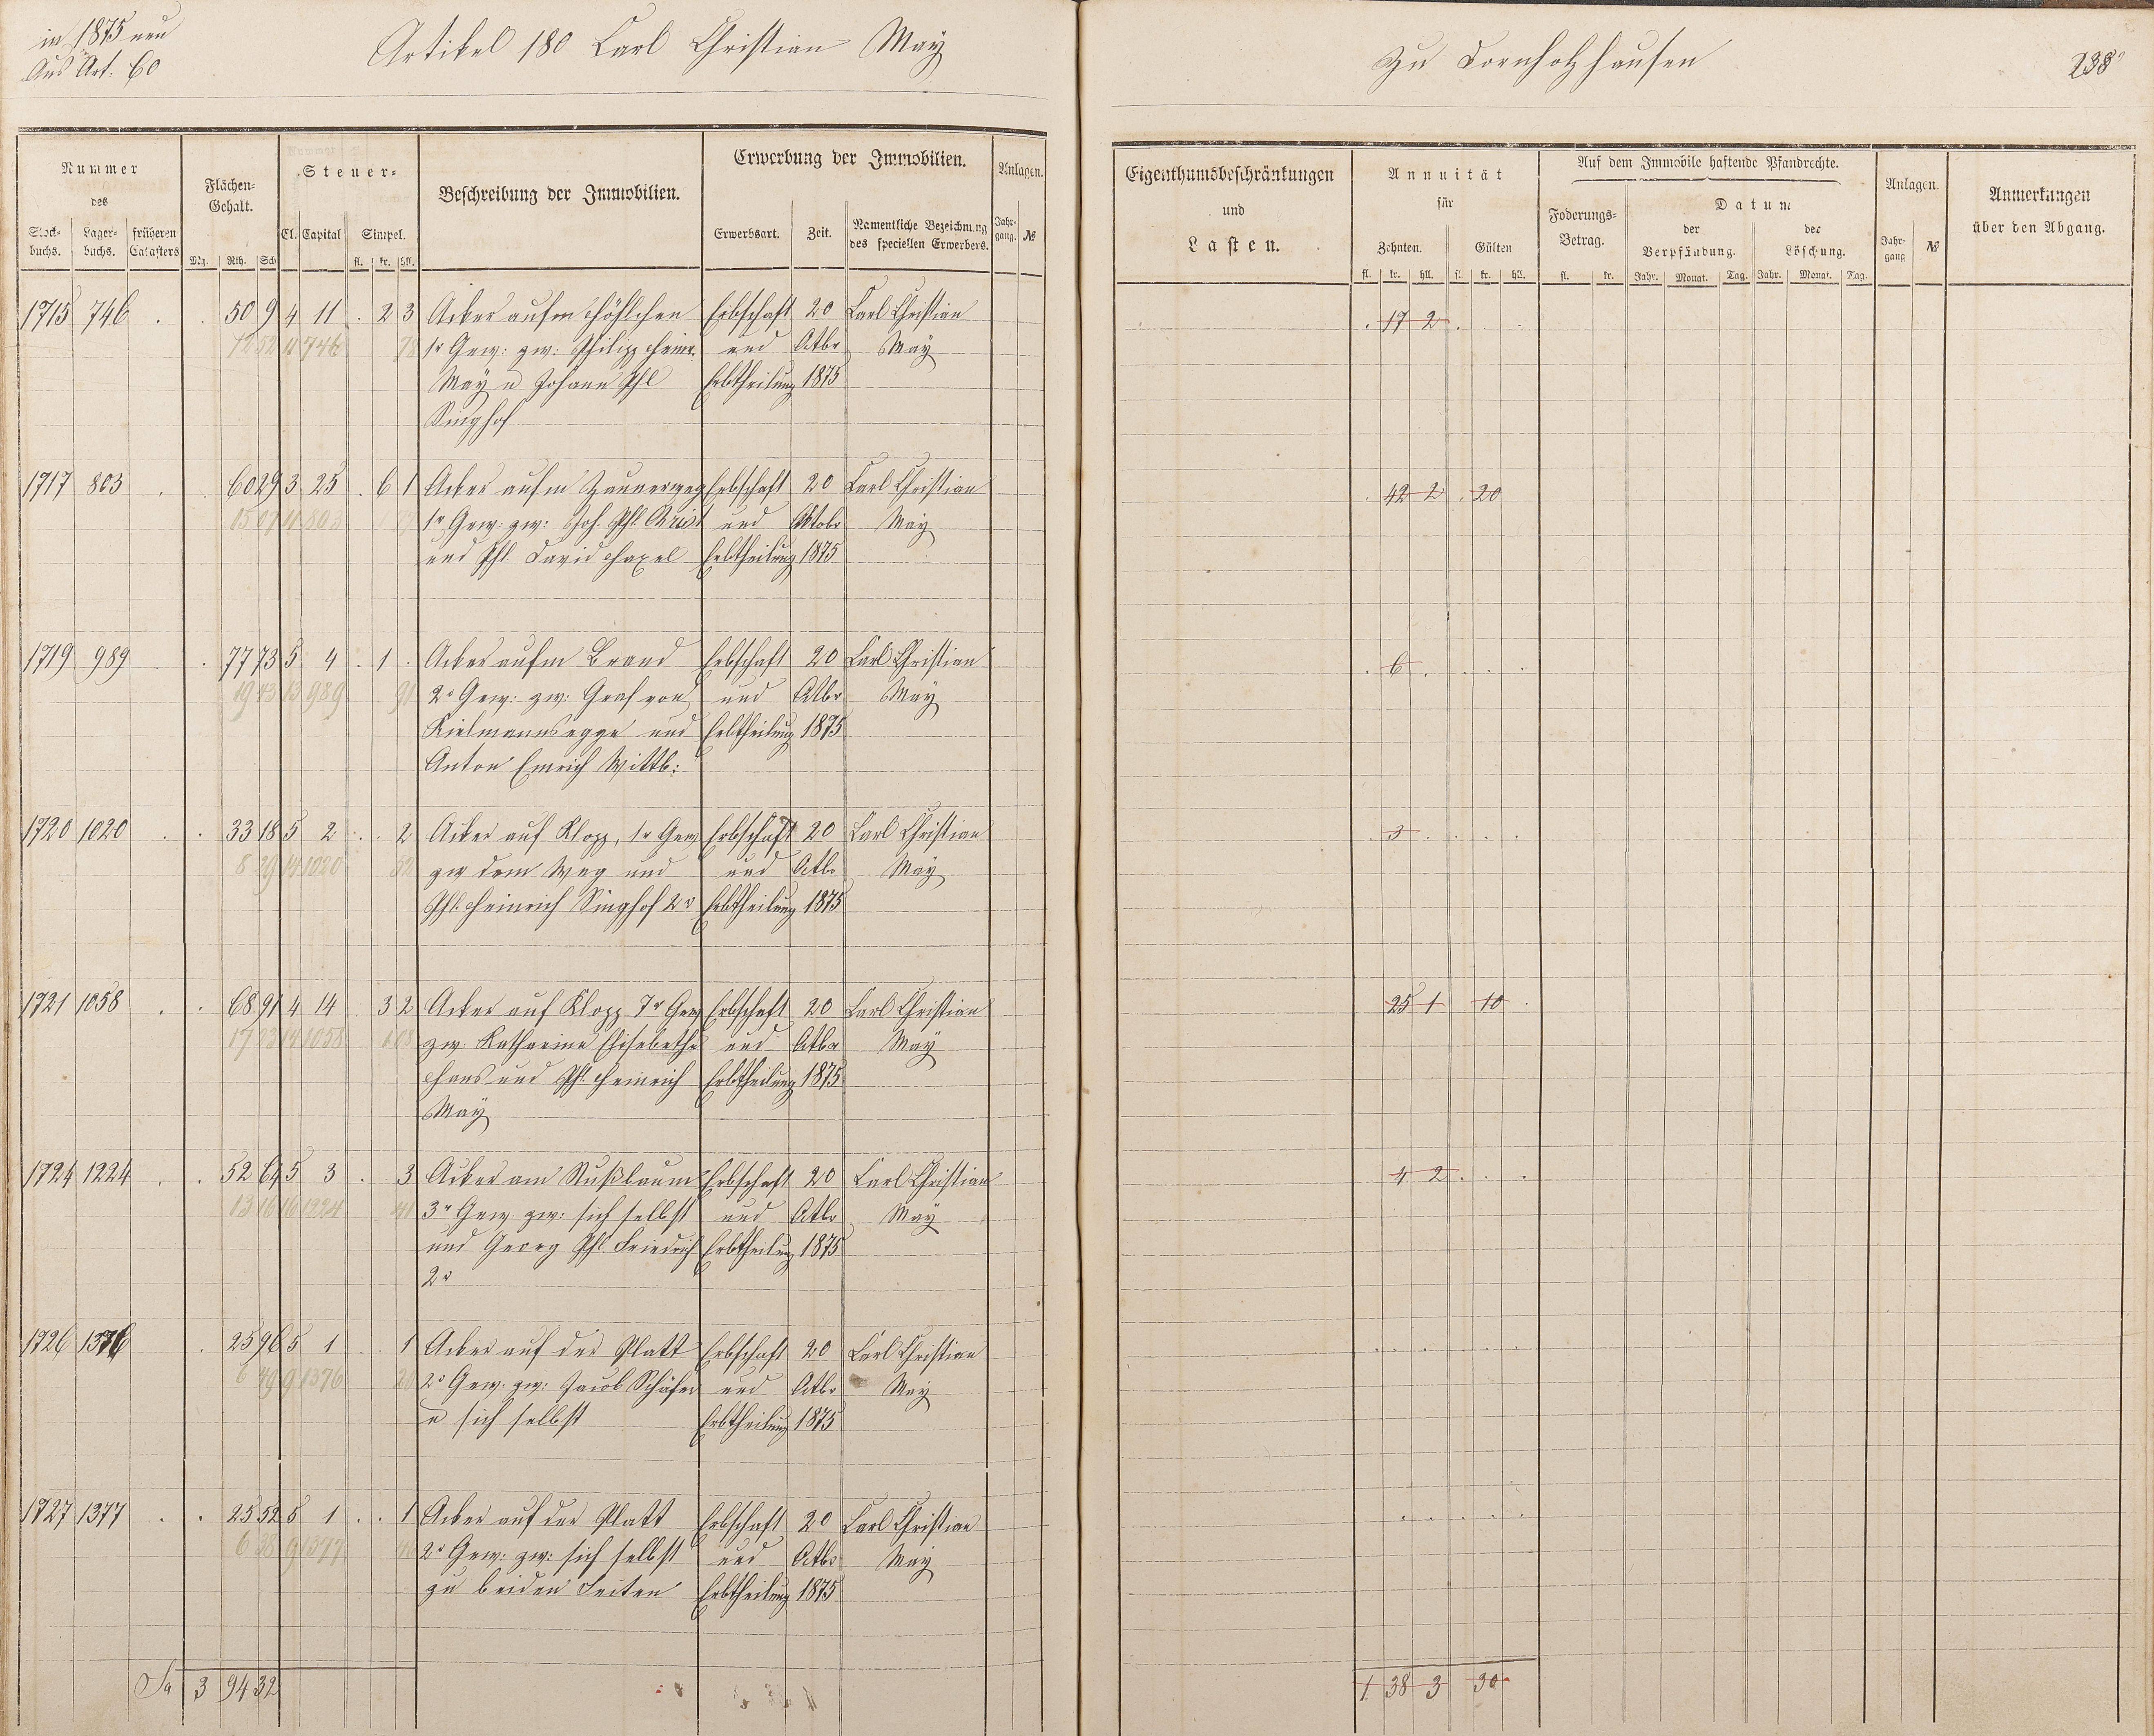 in 1875 neu
Aus Art. 60
Artikel 180 Carl Christian May
zu Dornholzhausen
238
Nummer des
Stock-buchs. Lager-buchs. früheren Catasters
Flächen-Gehalt.
Mg. Rth. Sch
Steuer-
Cl. Capital Simpel.
fl. kr. hll.
Beschreibung der Immobilien.
Erwerbung der Immobilien.
Erwerbsart. Zeit. Namentliche Bezeichnung des speciellen Erwerbers.
Anlagen.
Jahr-gang. №
Eigenthumsbeschränkungen
und
Lasten.
Annuität
für
Zehnten. Gülten
fl. kr. hll. fl. kr. hll.
Auf dem Immobile haftende Pfandrechte.
Foderungs-Betrag.
fl. kr.
Datum
der Verpfändung. der Löschung.
Jahr. Monat. Tag. Jahr. Monat. Tag.
Anlagen.
Jahr-gang №
Anmerkungen
über den Abgang.
1715 746 . . 50 9 4 11 . 2 3 Acker aufm Höhlchen Erbschaft 20 Carl Christian . 17 2 . . .
12 52 11 746 78 1r Gew: zw: Philipp Heinr. und Octbr May
May u Johann Phl Erbtheilung 1875
Singhof
1717 803 . . 60 29 3 25 . 6 1 Acker aufm Zaunerweg Erbschaft 20 Carl Christian . 42 2 . 20
15 07 11 803 1r Gew: zw: Joh. Phl. Brist und Oktobr May
und Phl. David Haxel Erbtheilung 1875
1719 989 . . 77 73 5 4 . 1 . Acker aufm Brand Erbschaft 20 Carl Christian . 6 . . . .
19 43 13 989 91 2r Gew: zw: Graf von und Octbr May
Kielmannsegge und Erbtheilung 1875
Anton Emrich Wittb:
1720 1020 . . 33 18 5 2 . . 2 Acker auf Klopp, 1r Gew Erbschaft 20 Carl Christian . 3 . . . .
8 29 14 1020 52 zw dem Weg und und Octbr May
Phl. Heinrich Singhof 2r Erbtheilung 1875
1721 1058 . . 68 91 4 14 . 3 2 Acker auf Klopp 7r Gew Erbschaft 20 Carl Christian 25 1 10 .
17 23 14 1058 1 08 zw: Katharine Elisebethe und Octbr May
Hans und Phl. Heinrich Erbtheilung 1875
May
1724 1224 . . 52 64 5 3 . 3 Acker am Nußbaum Erbschaft 20 Carl Christian 4 2 . . .
13 16 16 1224 41 3r Gew zw: sich selbst und Octbr May
und Georg Phl. Friedrich Erbtheilung 1875
2r
1726 1376 . 25 96 5 1 . . 1 Acker auf der Platt Erbschaft 20 Carl Christian . . . . . .
6 49 9 1376 20 2r Gew: zw: Jacob Schäfer und Octbr May
u sich selbst Erbtheilung 1875
1727 1377 . . 25 52 5 1 . . 1 Acker auf der Platt Erbschaft 20 Carl Christian . . . . .
6 38 9 1377 2r Gew: zw: sich selbst und Octbr May
zu beiden Seiten Erbtheilung 1875
Sa 3 94 32 1 38 3 30